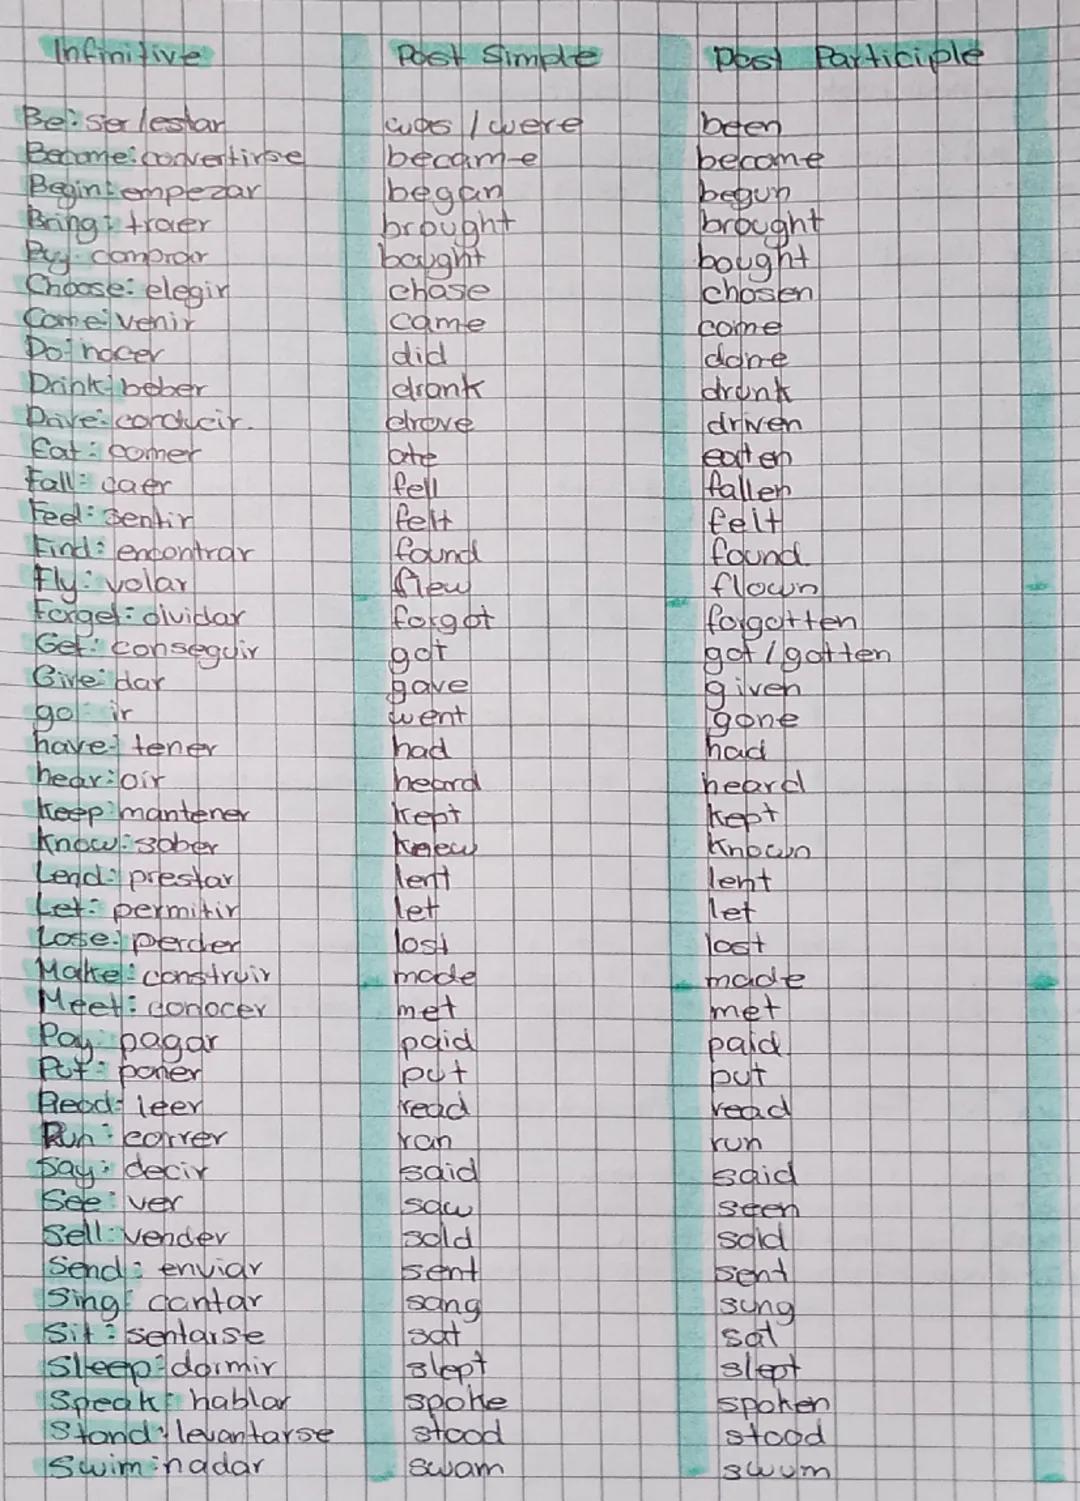 Infinitive Past Simple Past Participle
Be: ser/estar was / were been
Become: convertirse became become
Begin: empezar began begun
Bring: traer brought brought
Buy: comprar bought bought
Choose: elegir chose chosen
Come: venir came come
Do: hacer did done
Drink: beber drank drunk
Drive: conducir. drove driven
Eat: comer ate eaten
Fall: caer fell fallen
Feel: sentir felt felt
Find: encontrar found found
Fly: volar flew flown
Forget: olvidar forgot forgotten
Get: conseguir got got / gotten
Give: dar gave given
go: ir went gone
have: tener had had
hear: oir heard heard
Keep: mantener kept kept
Know: saber knew known
Lend: prestar lent lent
Let: permitir let let
Lose: perder lost lost
Make: construir made made
Meet: conocer met met
Pay: pagar paid paid
Put: poner put put
Read: leer read read
Run: correr ran run
Say: decir said said
See: ver saw seen
Sell: vender sold sold
Send: enviar sent sent
Sing: cantar sang sung
Sit: sentarse sat sat
Sleep: dormir slept slept
Speak: hablar spoke spoken
Stand: levantarse stood stood
Swim: nadar swam swum